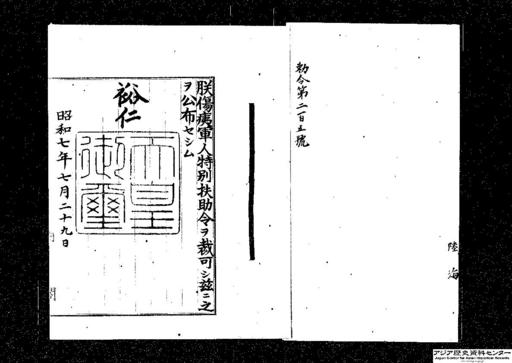 勅令第二百五號
陸海
朕傷痍軍人特別扶助令ヲ裁可シ玆ニ之
ヲ公布セシム
裕仁
天皇御璽
昭和七年七月二十九日
閣
アジア歴史資料センター
Japan Center for Asian Historical Records